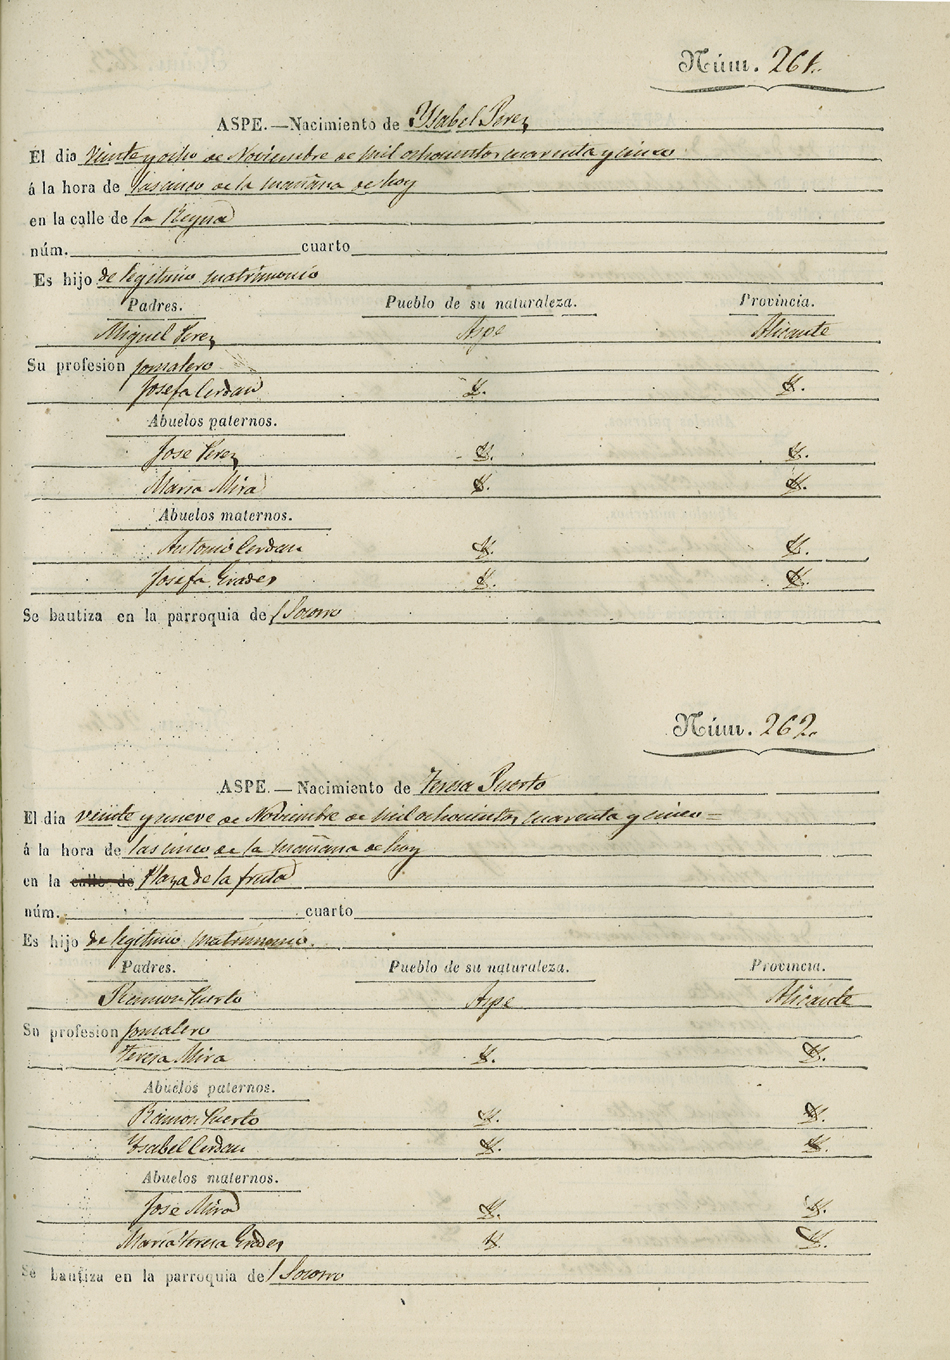 Núm. 261.
ASPE.—Nacimiento de Ysabel Perez
El dia veinte y ocho de Noviembre de mil ochocientos cuarenta y cinco
á la hora de las cinco de la mañana de hoy
en la calle de la Reyna
núm. cuarto
Es hijo de legitimo matrimonio
Padres. Pueblo de su naturaleza. Provincia.
Miguel Perez Aspe Alicante
Su profesion jornalero
Josefa Cerdan
Abuelos paternos.
Jose Perez
Maria Mira
Abuelos maternos.
Antonio Cerdan
Josefa
Se bautiza en la parroquia del Socorro
Núm. 262.
ASPE.—Nacimiento de Teresa Puerto
El dia veinte y nueve de Noviembre de mil ochocientos cuarenta y cinco =
á la hora de las cinco de la mañana de hoy
en la calle de Plaza de la fruta
núm. cuarto
Es hijo de legitimo matrimonio.
Padres. Pueblo de su naturaleza. Provincia.
Ramon Puerto Aspe Alicante
Su profesion jornalero
Teresa Mira
Abuelos paternos.
Ramon Puerto
Ysabel Cerdan
Abuelos maternos.
Jose Mira
Maria Teresa
Se bautiza en la parroquia del Socorro